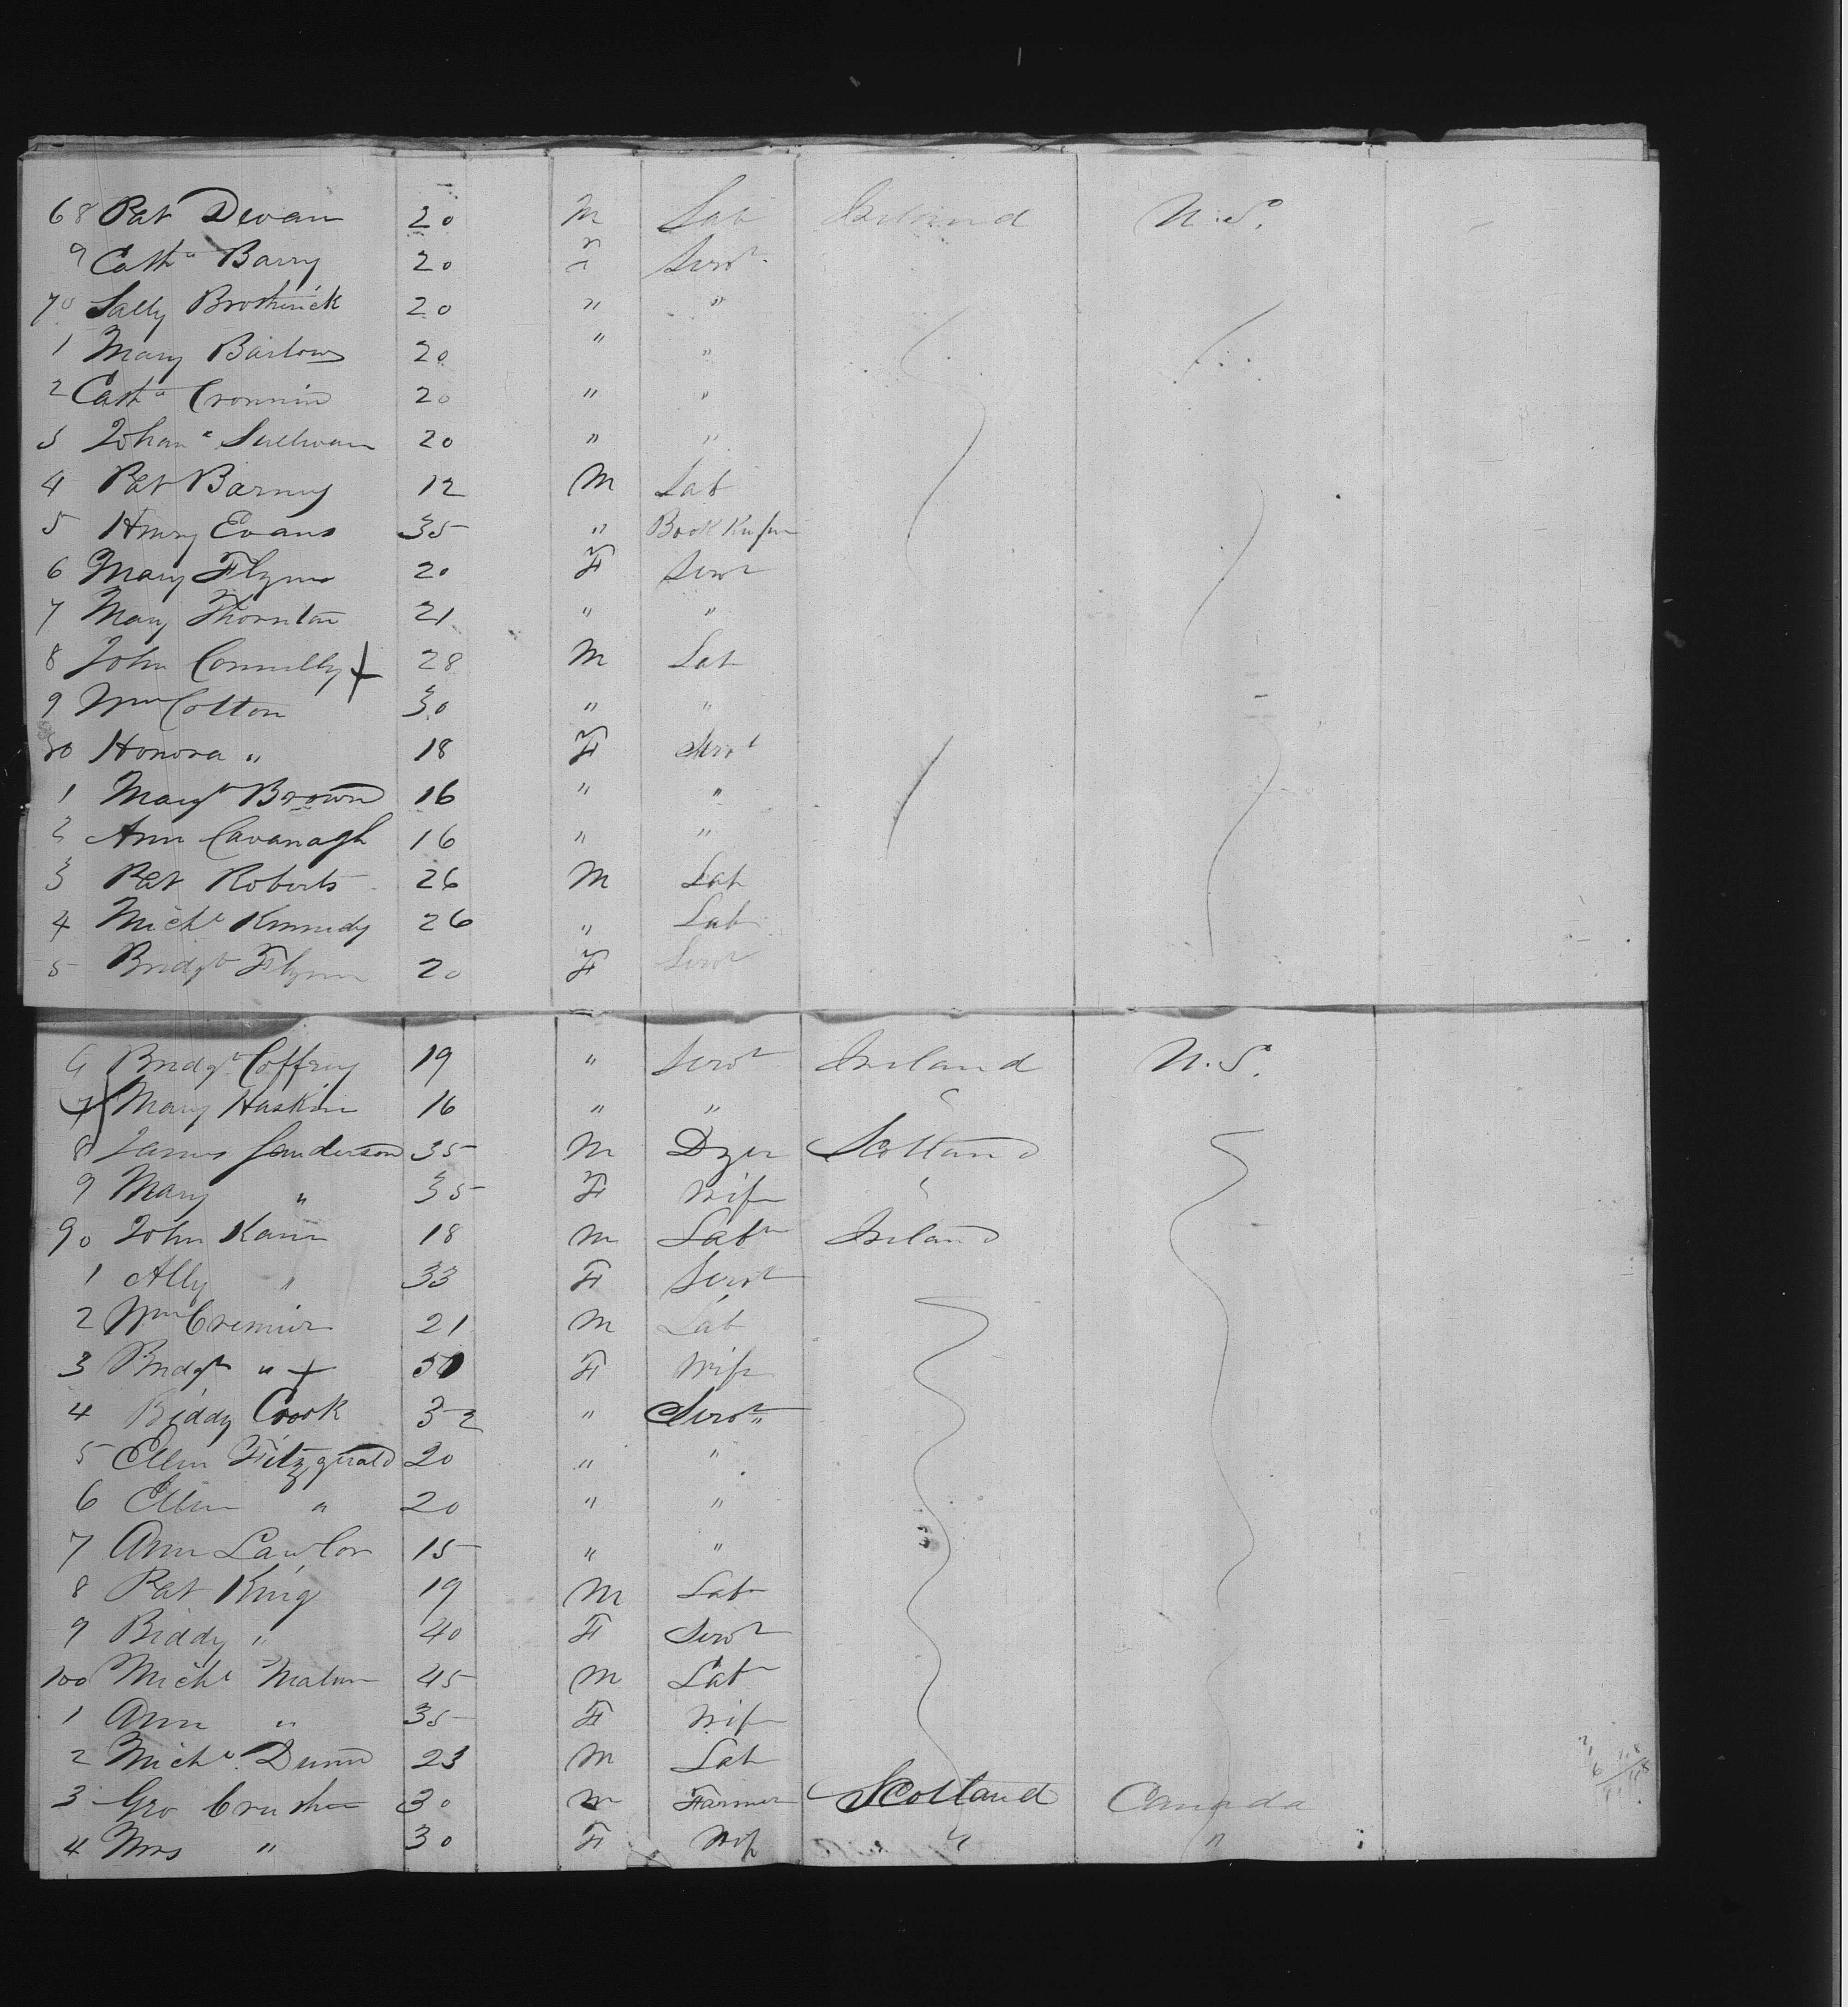 68 Pat Devan 20 M Lab Ireland U.S.
9 Catha Barry 20 F Servt
70 Sally Brothwick 20 " "
1 Mary Barlow 20 " "
2 Catha Cronnin 20 " "
3 Johana Sullivan 20 " "
4 Pat Barney 12 M Lab
5 Henry Evans 35 " Book Keeper
6 Mary Flynn 20 F Servt
7 Mary Thornton 21 " "
8 John Connelly + 28 M Lab
9 Wm Colton 30 " "
80 Honora " 18 F Servt
1 Margt Brown 16 " "
2 Ann Cavanagh 16 " "
3 Pat Roberts 26 M Lab
4 Michl Kennedy 26 " Lab
5 Bridgt Flynn 20 F Servt
6 Bridgt Coffrey 19 " Servt Ireland U.S.
7 Mary Haskin 16 " " "
8 James Sanderson 35 M Dyer Scotland
9 Mary " 35 F Wife "
90 John Kann 18 M Labr Ireland
1 Ally " 33 F Servt
2 Wm Cremier 21 M Lab
3 Bridgt " + 50 F Wife
4 Biddy Cook 32 " Servt
5 Ellen Fitzgerald 20 " "
6 Ellen " 20 " "
7 Ann Lawlor 15 " "
8 Pat King 19 M Labr
9 Biddy " 40 F Servt
100 Michl Malun 45 M Labr
1 Ann " 35 F Wife
2 Michl Dunn 23 M Lab
3 Geo Crusher 30 M Farmer Scotland Canada
4 Mrs " 30 F Wife " "